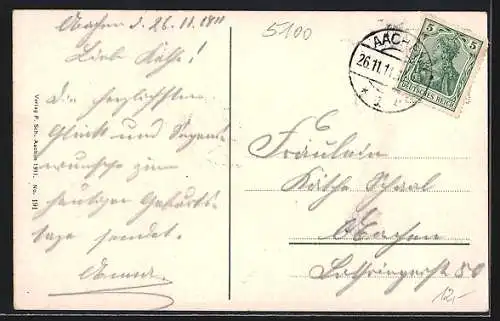 Aachen d. 26.11.1911
Liebe Käthe!
Die herzlichsten
Glück und Segens
wünsche zum
heutigen Geburts
tage sendet.
Anna.
Verlag P. Sch. Aachen 1911. No. 191
5100
AACHEN
26.11.11.
5 5
DEUTSCHES REICH
Fräulein
Käthe Schaal
Aachen
Lothringerstr 80
12,-